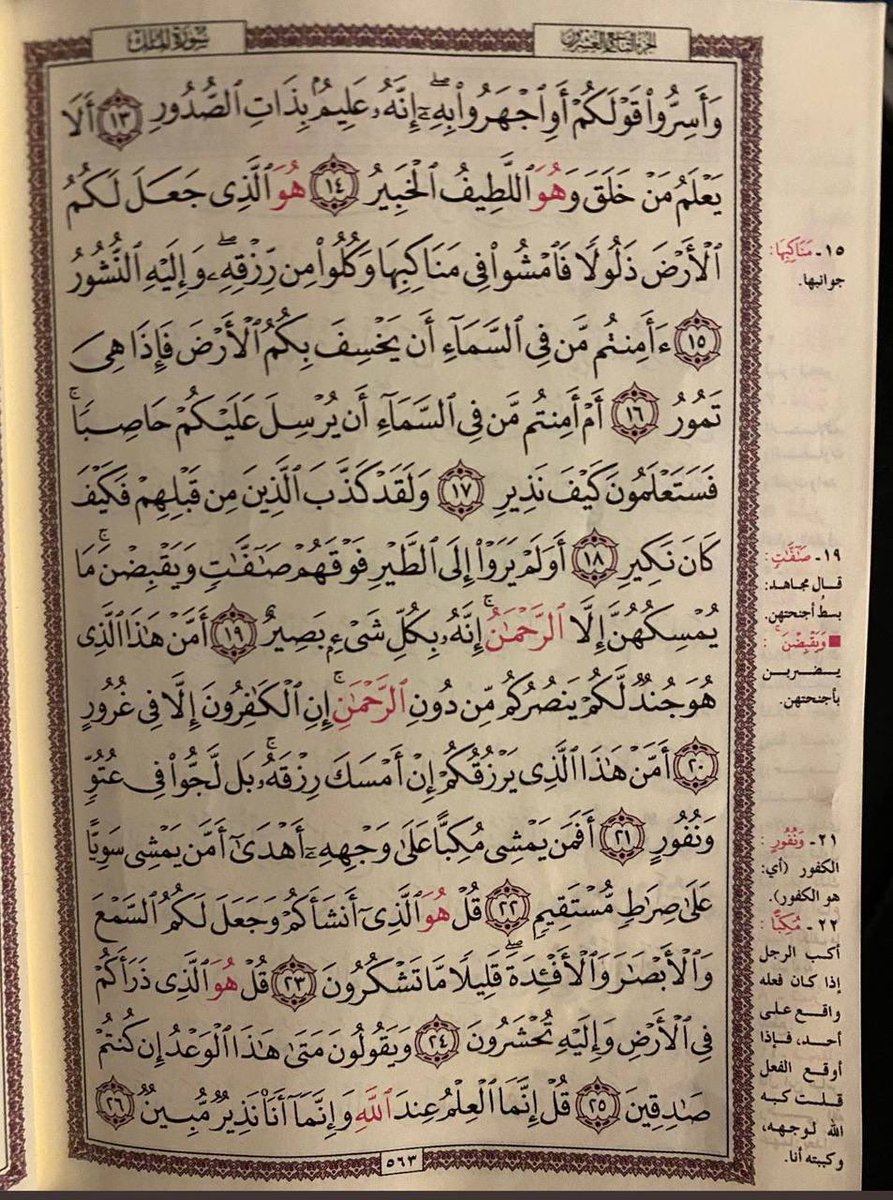 الجزء التاسع والعشرون
سورة الملك
وَأَسِرُّواْ قَوْلَكُمْ أَوِ ٱجْهَرُواْ بِهِۦٓۖ إِنَّهُۥ عَلِيمُۢ بِذَاتِ ٱلصُّدُورِ ١٣ أَلَا
يَعْلَمُ مَنْ خَلَقَ وَهُوَ ٱللَّطِيفُ ٱلْخَبِيرُ ١٤ هُوَ ٱلَّذِى جَعَلَ لَكُمُ
ٱلْأَرْضَ ذَلُولًا فَٱمْشُواْ فِى مَنَاكِبِهَا وَكُلُواْ مِن رِّزْقِهِۦۖ وَإِلَيْهِ ٱلنُّشُورُ
١٥ ءَأَمِنتُم مَّن فِى ٱلسَّمَآءِ أَن يَخْسِفَ بِكُمُ ٱلْأَرْضَ فَإِذَا هِىَ
تَمُورُ ١٦ أَمْ أَمِنتُم مَّن فِى ٱلسَّمَآءِ أَن يُرْسِلَ عَلَيْكُمْ حَاصِبًاۖ
فَسَتَعْلَمُونَ كَيْفَ نَذِيرِ ١٧ وَلَقَدْ كَذَّبَ ٱلَّذِينَ مِن قَبْلِهِمْ فَكَيْفَ
كَانَ نَكِيرِ ١٨ أَوَلَمْ يَرَوْاْ إِلَى ٱلطَّيْرِ فَوْقَهُمْ صَٰٓفَّٰتٍ وَيَقْبِضْنَۚ مَا
يُمْسِكُهُنَّ إِلَّا ٱلرَّحْمَٰنُۚ إِنَّهُۥ بِكُلِّ شَىْءٍۭ بَصِيرٌ ١٩ أَمَّنْ هَٰذَا ٱلَّذِى
هُوَ جُندٌ لَّكُمْ يَنصُرُكُم مِّن دُونِ ٱلرَّحْمَٰنِۚ إِنِ ٱلْكَٰفِرُونَ إِلَّا فِى غُرُورٍ
٢٠ أَمَّنْ هَٰذَا ٱلَّذِى يَرْزُقُكُمْ إِنْ أَمْسَكَ رِزْقَهُۥۚ بَل لَّجُّواْ فِى عُتُوٍّ
وَنُفُورٍ ٢١ أَفَمَن يَمْشِى مُكِبًّا عَلَىٰ وَجْهِهِۦٓ أَهْدَىٰٓ أَمَّن يَمْشِى سَوِيًّا
عَلَىٰ صِرَٰطٍ مُّسْتَقِيمٍ ٢٢ قُلْ هُوَ ٱلَّذِىٓ أَنشَأَكُمْ وَجَعَلَ لَكُمُ ٱلسَّمْعَ
وَٱلْأَبْصَٰرَ وَٱلْأَفْـِٔدَةَۖ قَلِيلًا مَّا تَشْكُرُونَ ٢٣ قُلْ هُوَ ٱلَّذِى ذَرَأَكُمْ
فِى ٱلْأَرْضِ وَإِلَيْهِ تُحْشَرُونَ ٢٤ وَيَقُولُونَ مَتَىٰ هَٰذَا ٱلْوَعْدُ إِن كُنتُمْ
صَٰدِقِينَ ٢٥ قُلْ إِنَّمَا ٱلْعِلْمُ عِندَ ٱللَّهِ وَإِنَّمَآ أَنَا۠ نَذِيرٌ مُّبِينٌ ٢٦
٥٦٣
١٥ ـ مَنَاكِبِهَا :
جوانبها.
١٩ ـ صَٰٓفَّٰتٍ :
قال مجاهد:
بسطُ أجنحتهن.
■ وَيَقْبِضْنَ :
يضربن
بأجنحتهن.
٢١ ـ وَنُفُورٍ :
الكفور (أي:
هو الكفور).
٢٢ ـ مُكِبًّا :
أكب الرجل
إذا كان فعله
واقع على
أحد، فإذا
أوقع الفعل
قلت كبه
الله لوجهه،
وكببته أنا.